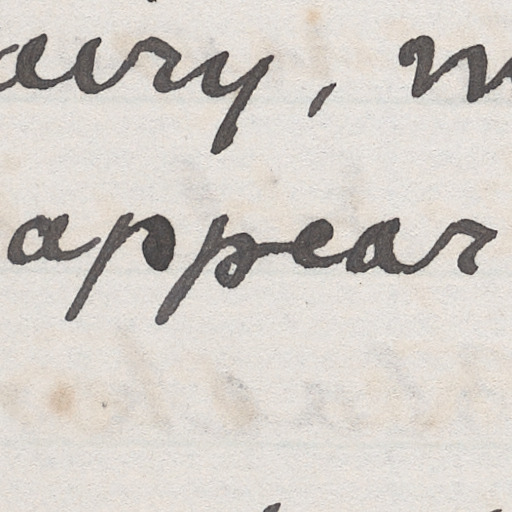 airy, m
appear